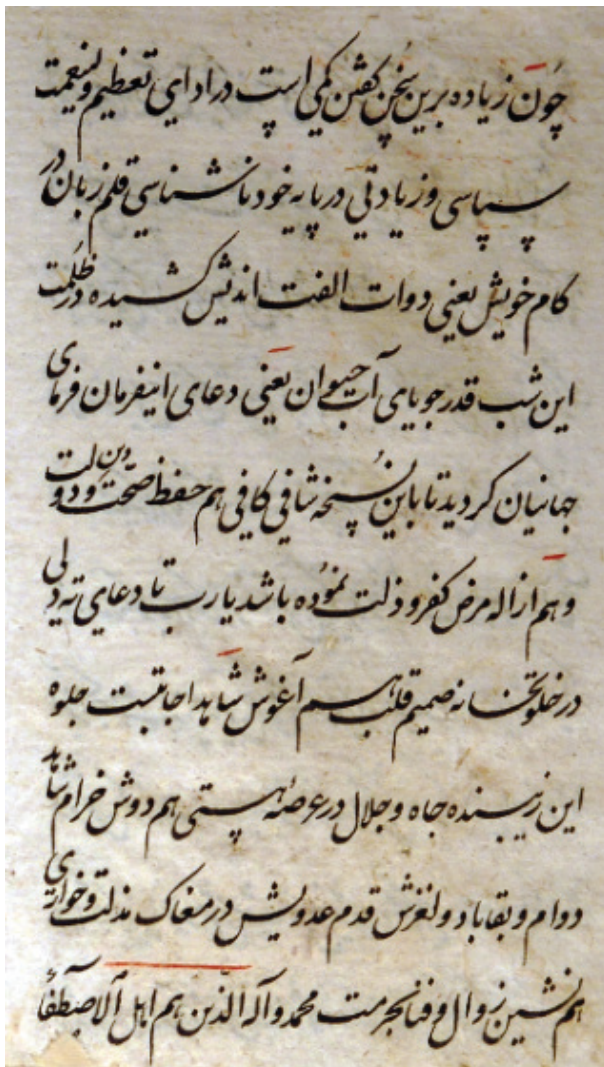 چون زیاده برین سخن کفتن کمی است در ادای تعظیم ولینعمت
سپاسی و زیادتی در پایه خود ناشناسی قلم زبان در
کام خویش یعنی دوات الفت اندیش کشیده در ظلمت
این شب قدر جویای آب حیوان یعنی دعای اینفرمان فرمای
جهانیان کردید تا باین نسخه شافی کافی هم حفظ صحت دین و دولت
و هم ازاله مرض کفر و ذلت نموده باشد یا رب تا دعای ته دلی
در خلوتخانه صمیم قلب هم آغوش شاهد اجابتست جلوه
این زیبنده جاه و جلال در عرصهٔ هستی هم دوش خرام شاهد
دوام و بقا باد و لغزش قدم عدویش در مغاک مذلت و خواری
هم نشین زوال و فنا بحرمت محمد و آله الذین هم اهل آلاصطفاء